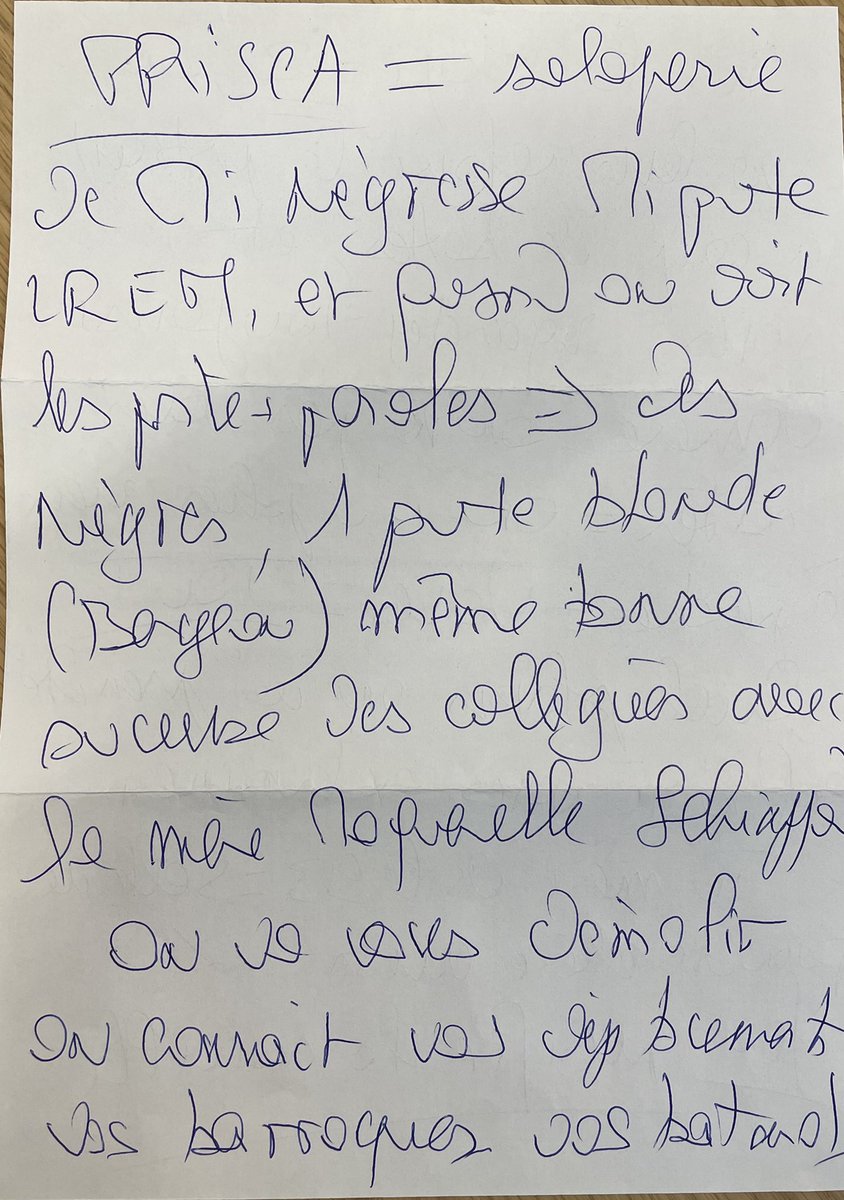 PRiSCA = saloperie
De Mi Négresse Mi pute
LREM, et quand on voit
les porte-paroles => des
Nègres, 1 pute blonde
même bonne
suceuse des collègues avec
la mère Maquerelle Schiappa
On va vous démolir
on connait vos
vos barraques vos batard